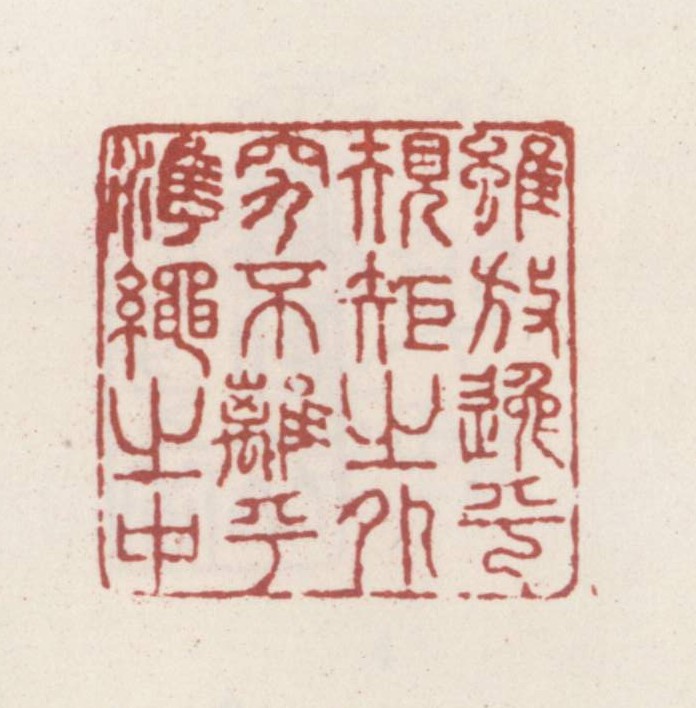 雖放逸乎
規矩之外
究不離乎
準繩之中